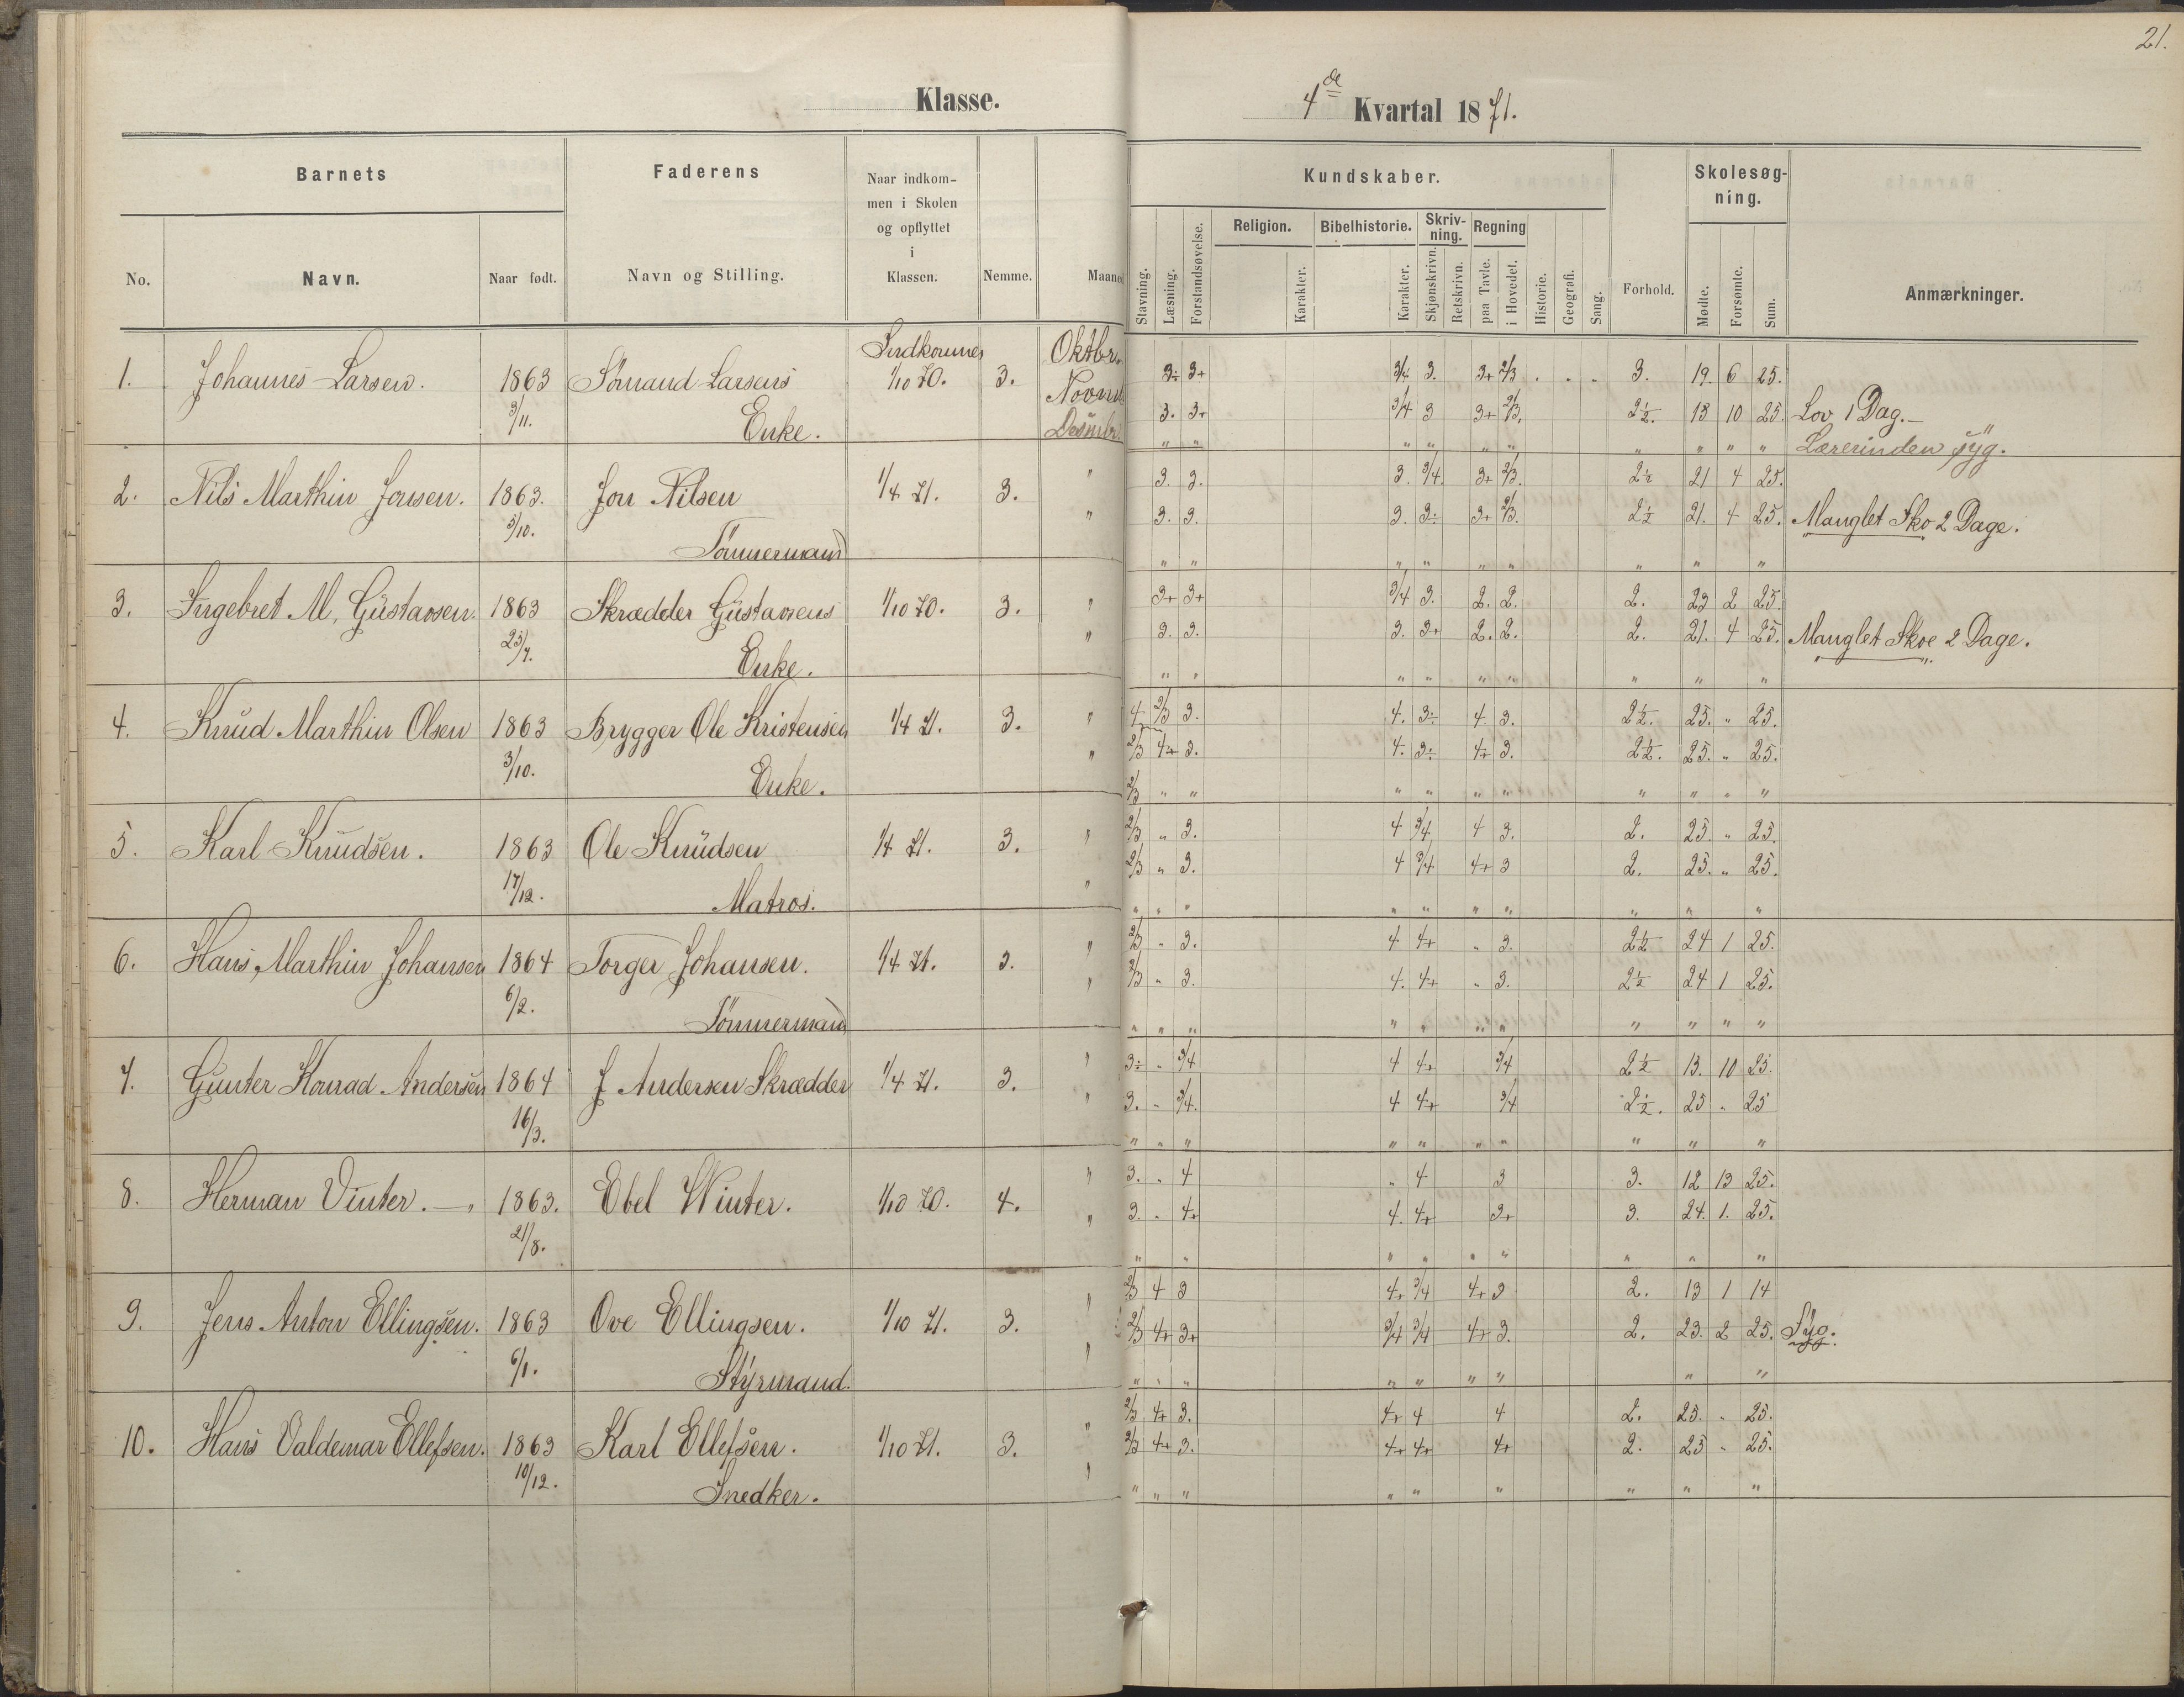 21.
Klasse.
4de Kvartal 1871.
Barnets
Faderens
Naar indkommen i Skolen og opflyttet i Klassen.
Kundskaber.
Skolesøgning.
Religion. Bibelhistorie. Skrivning. Regning
No. Navn. Naar født. Navn og Stilling. Nemme. Maaned
Stavning. Læsning. Forstandsøvelse. Karakter. Karakter. Skjønskrivn. Retskrivn. paa Tavle. i Hovedet. Historie. Geografi. Sang. Forhold. Mødte. Forsømte. Sum. Anmærkninger.
1. Johannes Larsen. 1863 Sömand Larsens Indkommen 1/10 70. 3. Oktbr. 3÷ 3+ 3/4 3. 3+ 2/3 3. 19. 6 25.
3/11. Enke. Novmb. 3. 3+ 3/4 3 3+ 2/3. 2½. 15 10 25. Lov 1 Dag.
Desmbr. " " " " " " " " " " Lærerinden syg.
2. Nils Marthin Jonsen. 1863. Jon Nilsen 1/4 71. 3. " 3. 3. 3. 3/4. 3+ 2/3. 2½ 21 4 25.
5/10. Tömmermand " 3. 3. 3. 3÷ 3+ 2/3. 2½ 21. 4 25. Manglet Sko 2 Dage.
" " " " " " " " "
3. Ingebret M, Gustavsen. 1863 Skrædder Gustavsens 1/10 70. 3. " 3+ 3+ 3/4 3. 2. 2. 2. 23 2 25.
23/7. Enke. " 3. 3. 3. 3+ 2. 2. 2. 21. 4 25. Manglet Skoe 2 Dage.
" " " " " " " " "
4. Knud Marthin Olsen 1863 Brygger Ole Kristensen 1/4 71. 3. " 4 2/3 3. 4. 3÷ 4. 3. 2½. 25. " 25.
3/10. Enke. " 2/3 4+ 3. 4. 3÷ 4+ 3. 2½. 25. " 25.
2/3 " " " " " " " " " "
5. Karl Knudsen. 1863 Ole Knudsen 1/4 71. 3. " 2/3 " 3. 4 3/4 4 3. 2. 25. " 25.
17/12. Matros. " 2/3 " 3. 4 3/4 4+ 3 2. 25. " 25.
" " " " " " " " " "
6. Hans, Marthin Johansen 1864 Torger Johansen. 1/4 71. 3. " 2/3 " 3. 4 4+ " 3. 2½ 24 1 25.
6/2. Tömmermand " 2/3 " 3. 4. 4+ " 3. 2½ 24 1 25.
" " " " " " " " " " "
7. Gunter Konrad Andersen 1864 J Andersen Skrædder 1/4 71. 3. " 3÷ " 3/4 4 4+ 3/4 2½ 13. 10 23.
16/3. " 3. " 3/4. 4 4+ 3/4 2½. 25 " 25
" " " " " " " " " "
8. Herman Vinter. 1863. Ebel Winter. 1/10 70. 4. " 3. " 4 " 4 3 3. 12 13 25.
21/8. " 3. " 4+ 4. 4+ 3+ 3. 24. 1. 25.
" " " " " " " " "
9. Jens Anton Ellingsen. 1863 Ove Ellingsen. 1/10 71. 3. " 2/3 4 3 4+ 3/4 4+ 3 2. 13 1 14
6/1. Styrmand. " 2/3 4+ 3+ 3/4 3/4 4+ 3. 2. 23. 2 25. Syg.
" " " " " " " " "
10. Hans Valdemar Ellefsen. 1863 Karl Ellefsen. 1/10 71. 3. " 2/3 4+ 3. 4+ 4 4 2. 25. " 25.
10/12. Snedker. " 2/3 4+ 3. 4+ 4+ 4+ 2. 25 " 25.
" " " " " " " " "